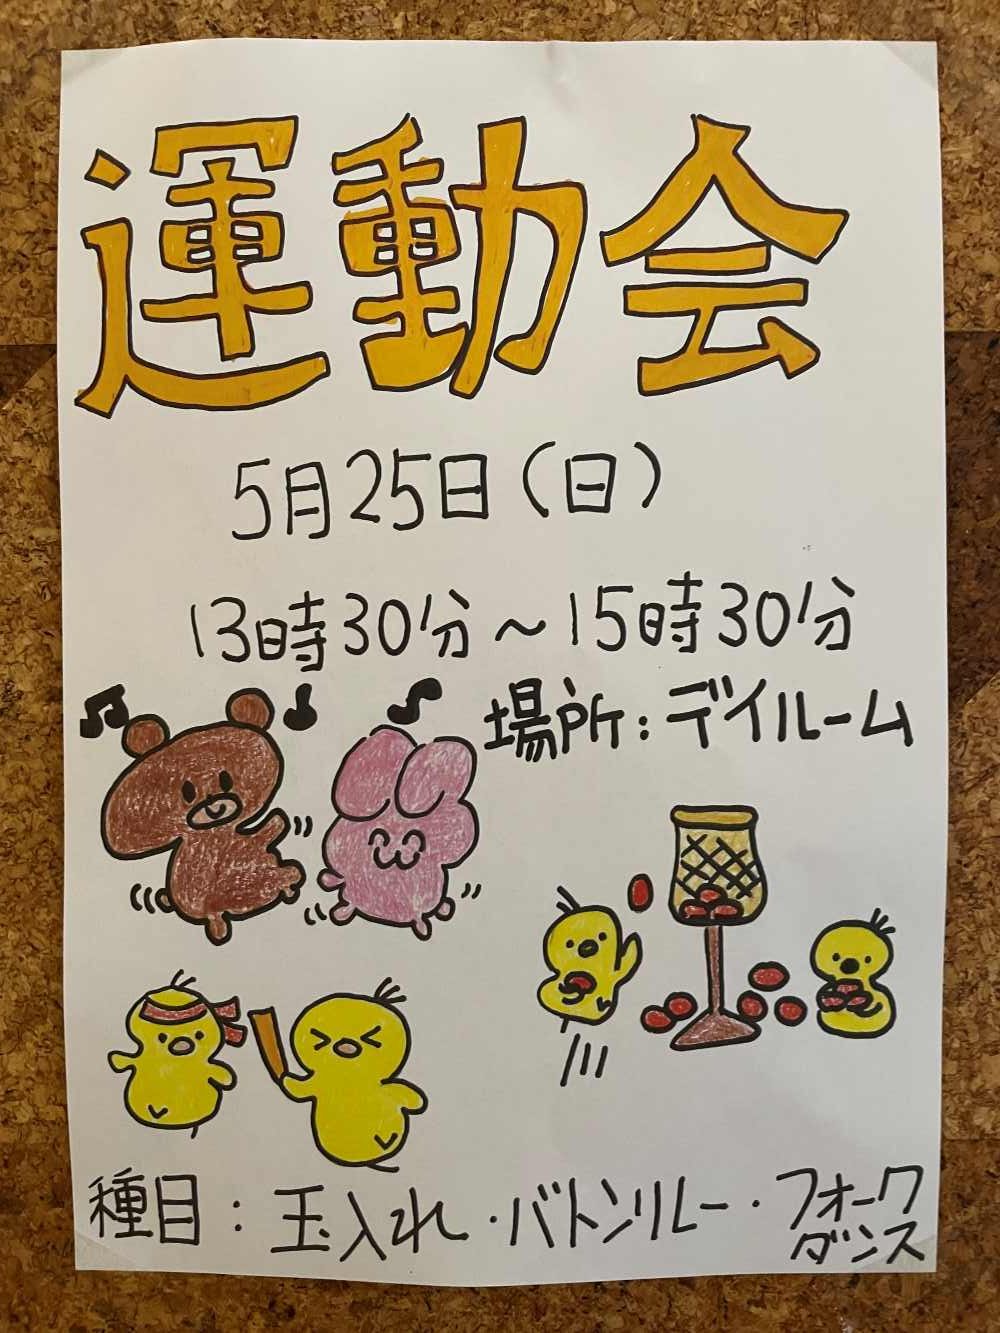 運動会
5月25日(日)
13時30分~15時30分
場所:デイルーム
種目:玉入れ・バトンリレー・フォーク
ダンス